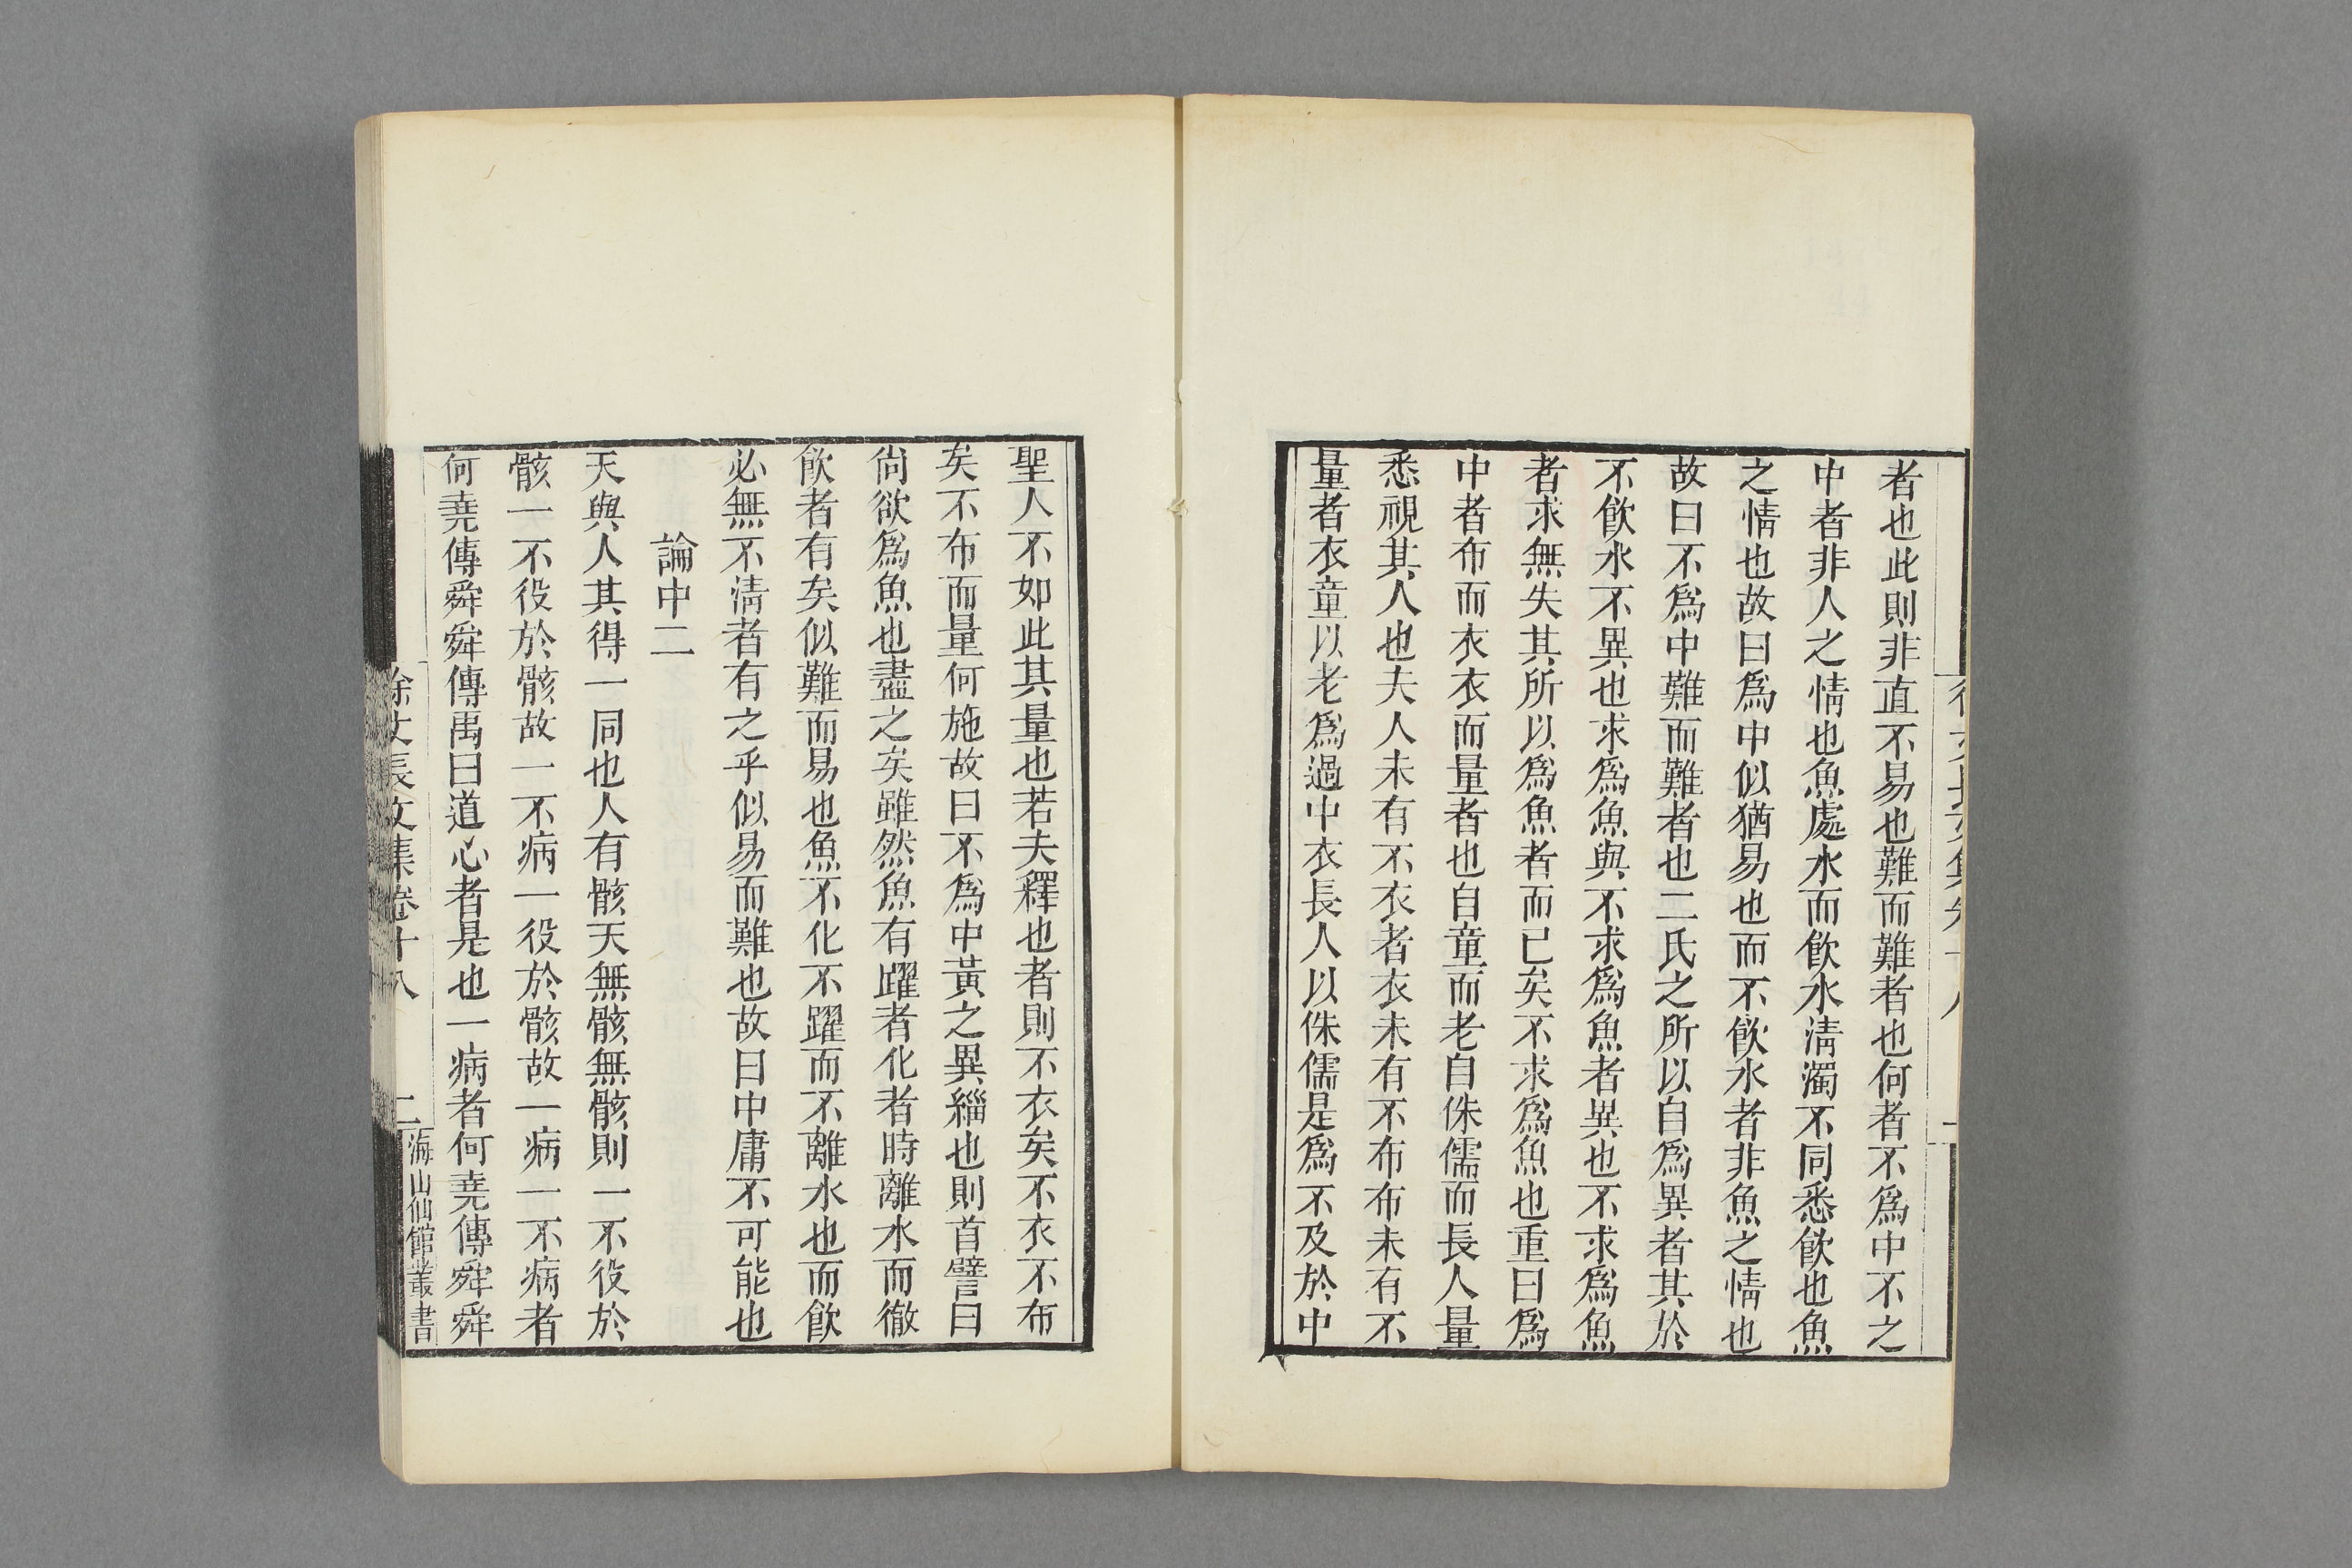 者也此則非直不易也難而難者也何者不爲中不之
中者非人之情也魚處水而飮水淸濁不同悉飮也魚
之情也故曰爲中似猶易也而不飮水者非魚之情也
故曰不爲中難而難者也二氏之所以自爲異者其於
不飮水不異也求爲魚與不求爲魚者異也不求爲魚
者求無失其所以爲魚者而已矣不求爲魚也重曰爲
中者布而衣衣而量者也自童而老自侏儒而長人量
悉視其人也夫人未有不衣者衣未有不布布未有不
量者衣童以老爲過中衣長人以侏儒是爲不及於中
聖人不如此其量也若夫釋也者則不衣矣不衣不布
矣不布而量何施故曰不爲中黃之異緇也則首譬曰
尙欲爲魚也盡之矣雖然魚有躍者化者時離水而徹
飮者有矣似難而易也魚不化不躍而不離水也而飮
必無不淸者有之乎似易而難也故曰中庸不可能也
論中二
天與人其得一同也人有骸天無骸無骸則一不役於
骸一不役於骸故一不病一役於骸故一病一不病者
何堯傳舜舜傳禹曰道心者是也一病者何堯傳舜舜
徐文長文集卷十八
二
海山仙館叢書